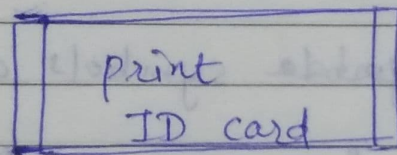 print
ID card